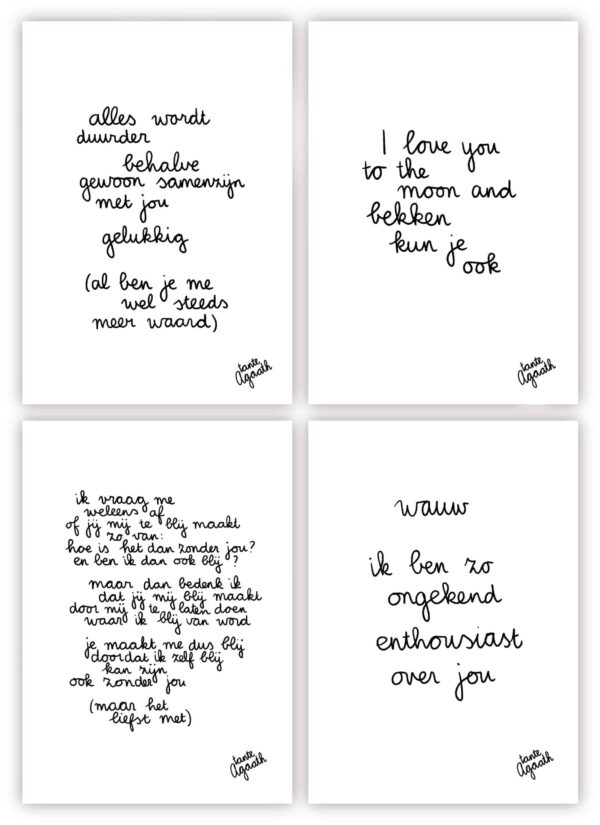 alles wordt
duurder
behalve
gewoon samenzijn
met jou
gelukkig
(al ben je me
wel steeds
meer waard)
tante
Agaath
I love you
to the
moon and
bekken
kun je
ook
tante
Agaath
ik vraag me
weleens af
of jij mij te blij maakt
zo van:
hoe is het dan zonder jou?
en ben ik dan ook blij?
maar dan bedenk ik
dat jij mij blij maakt
door mij te laten doen
waar ik blij van word
je maakt me dus blij
doordat ik zelf blij
kan zijn
ook zonder jou
(maar het
liefst met)
tante
Agaath
wauw
ik ben zo
ongekend
enthousiast
over jou
tante
Agaath